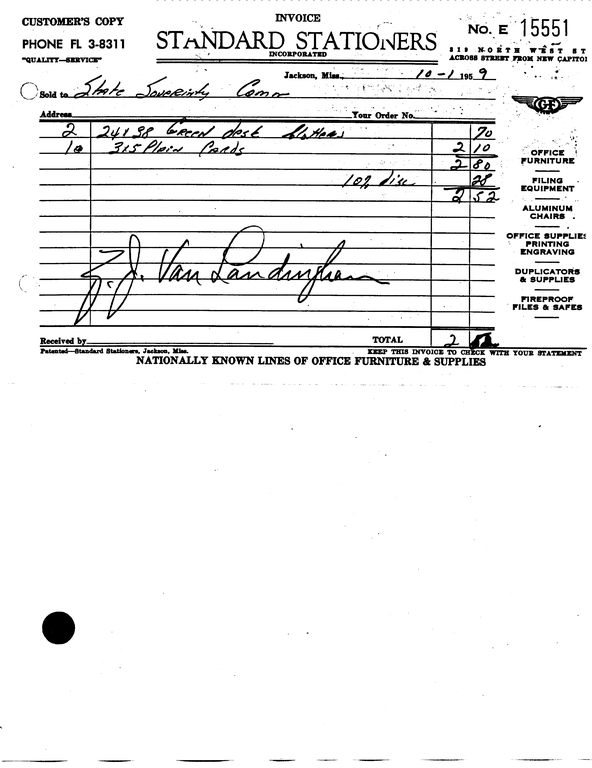 CUSTOMER'S COPY
INVOICE
No. E 15551
PHONE FL 3-8311
STANDARD STATIONERS
"QUALITY—SERVICE"
INCORPORATED
819 NORTH WEST ST
ACROSS STREET FROM NEW CAPITOL
Jackson, Miss., 10-1 1959
Sold to State Soverinty Comm
GF
Address Your Order No.
2 24138 Green desk blotters 70
10 315 Plain Cards 2 10
2 80
10% disc 28
2 52
OFFICE
FURNITURE
FILING
EQUIPMENT
ALUMINUM
CHAIRS
OFFICE SUPPLIES
PRINTING
ENGRAVING
DUPLICATORS
& SUPPLIES
FIREPROOF
FILES & SAFES
Z. J. Van Landingham
Received by TOTAL 2 52
Patented—Standard Stationers, Jackson, Miss. KEEP THIS INVOICE TO CHECK WITH YOUR STATEMENT
NATIONALLY KNOWN LINES OF OFFICE FURNITURE & SUPPLIES